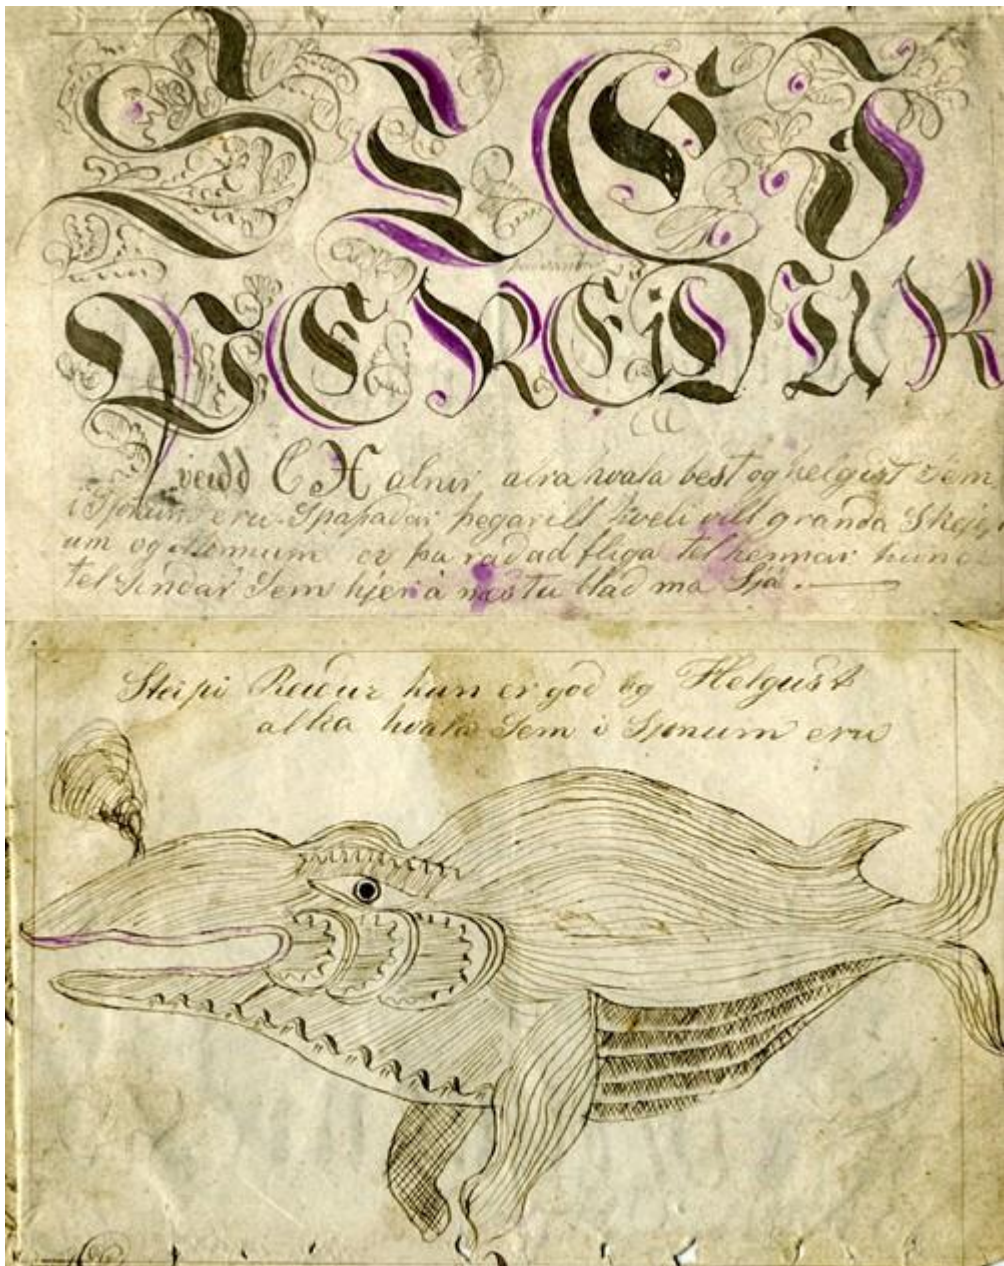 STEI
PEREiDUR
veidd C X alner alra hvala best og helgust Sem
i Sjonum eru. þegar ill hveli vill granda Skip
um og Monnum er þa rad ad fliga tel hennar hun
tel Sindar Sem hjer a næstu blad ma Sja. —
Steipi Reidur hun er god og Helgust
allra hvala Sem i Sjonum eru